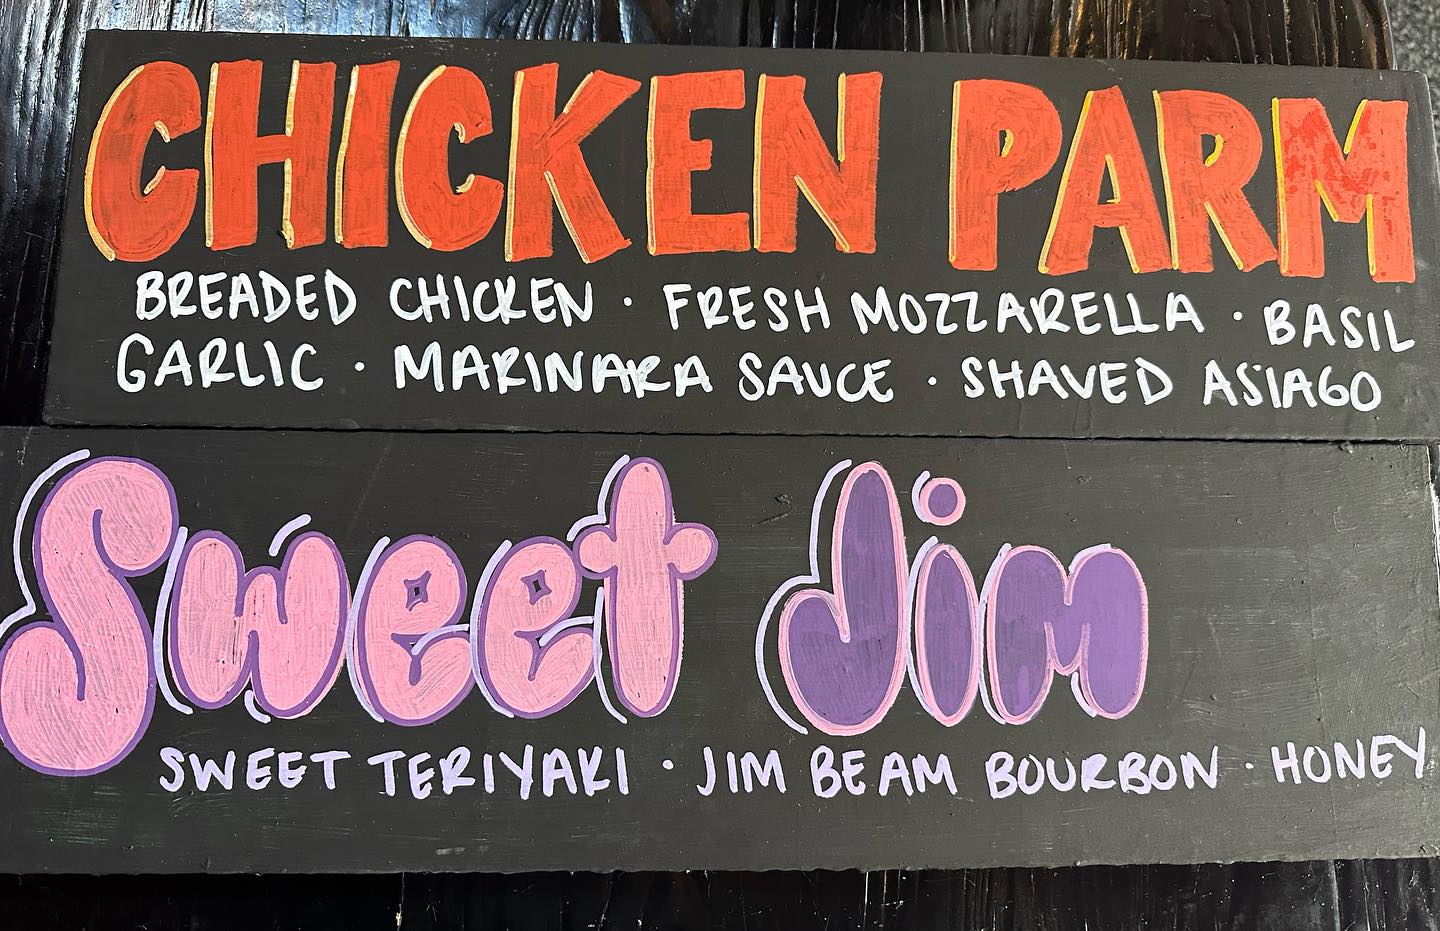 CHICKEN PARM
BREADED CHICKEN · FRESH MOZZARELLA · BASIL
GARLIC · MARINARA SAUCE · SHAVED ASIAGO
Sweet Jim
SWEET TERIYAKI · JIM BEAM BOURBON · HONEY